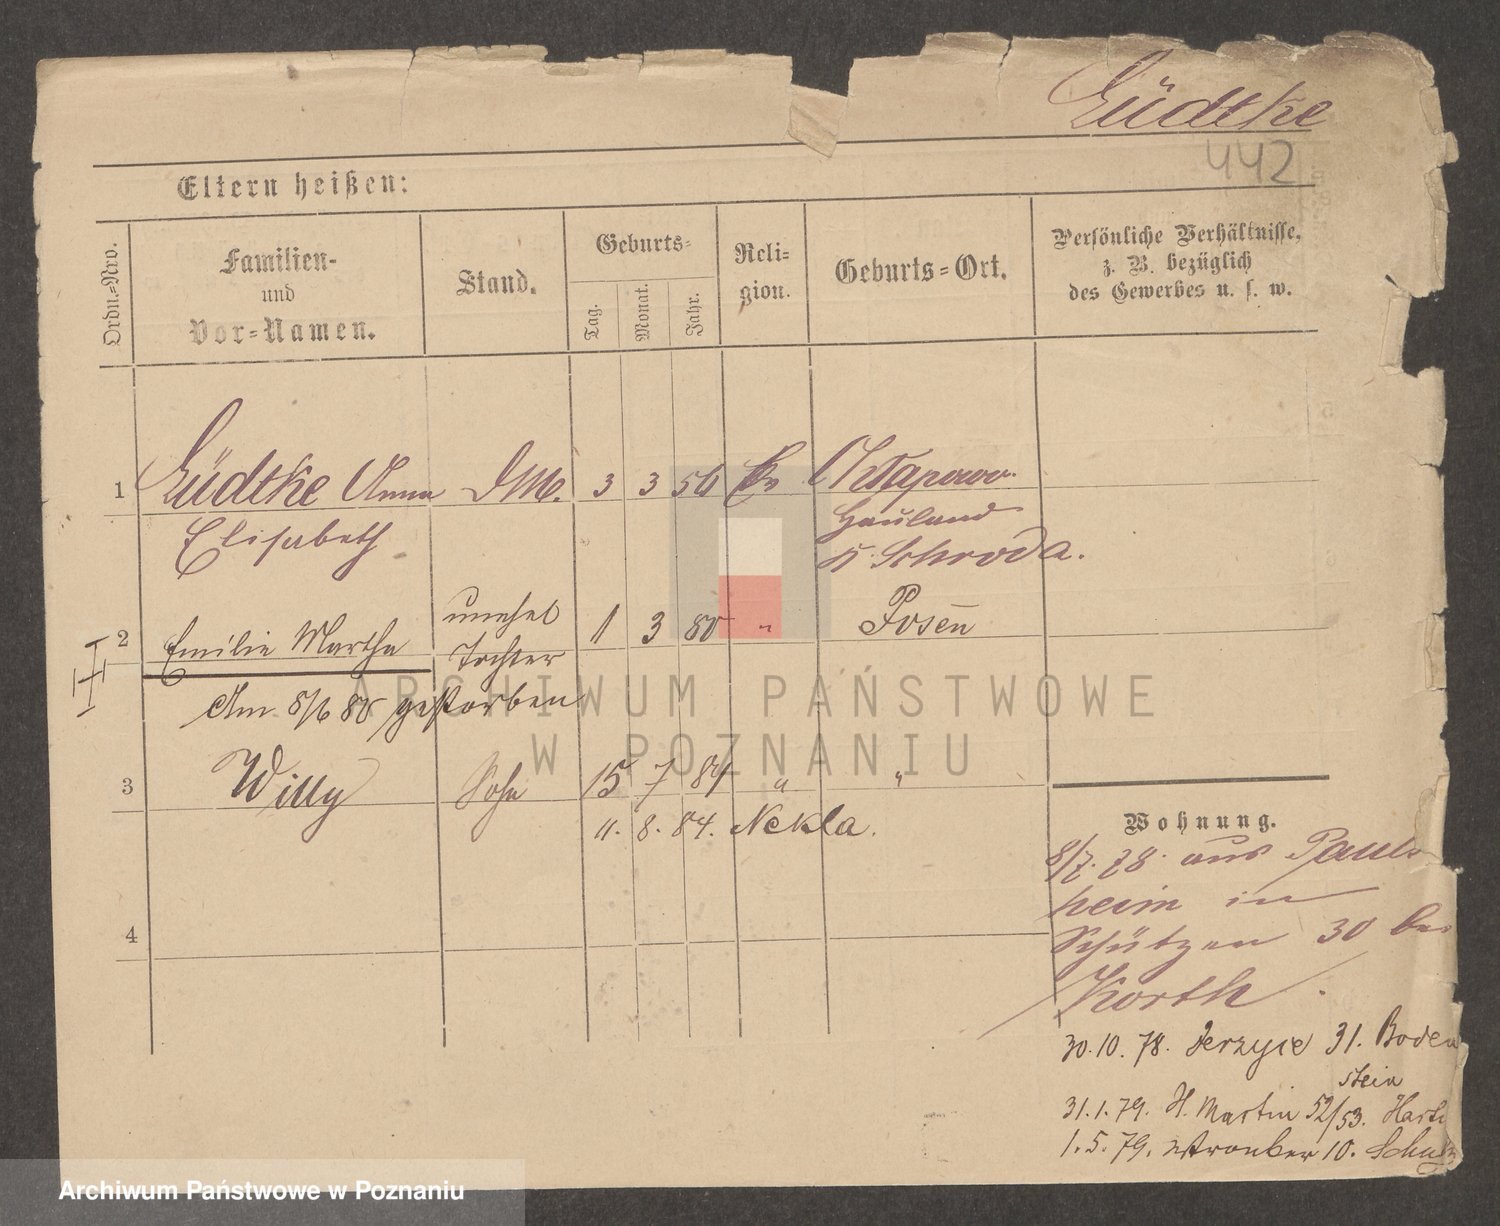 Lüdtke
442
Eltern heißen:
Ordn.-Nro.
Familien-
und
Vor-Namen.
Stand.
Geburts-
Tag.
Monat.
Jahr.
Reli-
gion.
Geburts-Ort.
Persönliche Verhältnisse,
z. B. bezüglich
des Gewerbes u. s. w.
1 Lüdtke Anna DM. 3 3 56 Ev
Elisabeth
Hauland
Schroda.
2 Emilie Martha unehel 11 3 80 " Posen
Tochter
Am 8/6 80 gestorben
3 Willy Sohn 15 7 84 " "
11. 8. 84. Nekla.
4
Wohnung.
8/7. 78. aus Pauls
heim in
Schützen 30 bei
Korth.
30. 10. 78. Jerzyce 31. Boden
stein
31. 1. 79. St. Martin 52/53.
1. 5. 79. Wronker 10.
ARCHIWUM PAŃSTWOWE
W POZNANIU
Archiwum Państwowe w Poznaniu